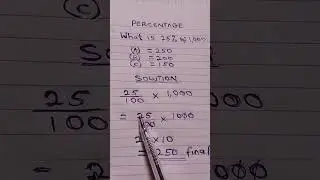 PERCENTAGE
What is 25% of 1,000
(A) = 250
(B) = 200
(C) = 150
SOLUTION
25/100 × 1,000
= 25/100 × 1000
× 10
= 250 final